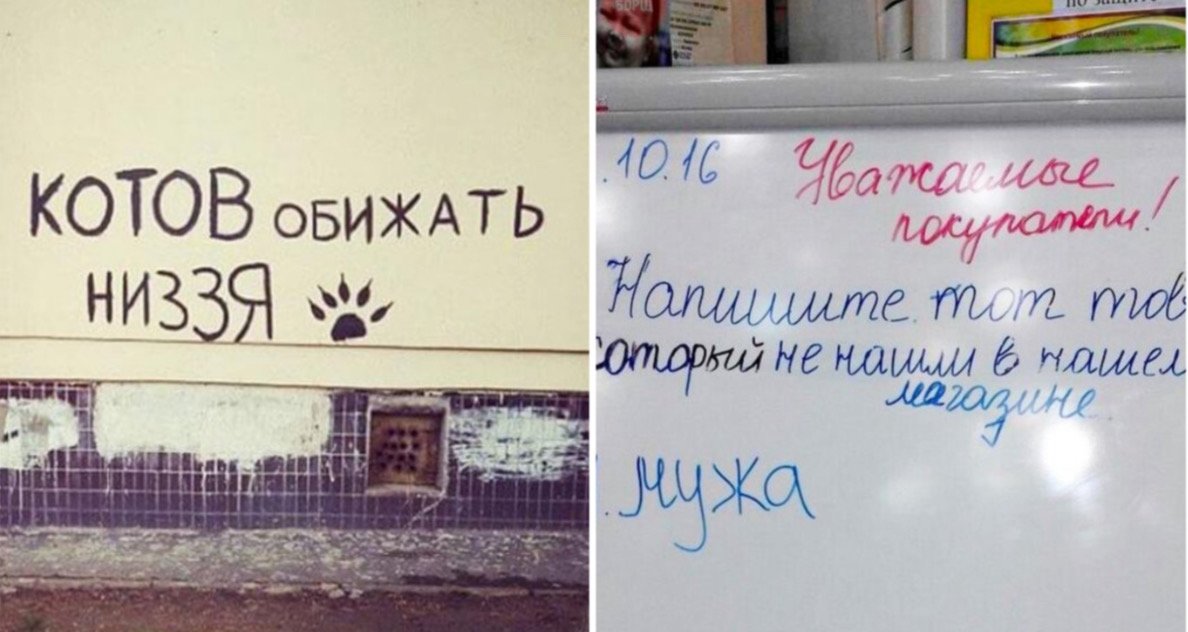 КОТОВ ОБИЖАТЬ
НИЗЗЯ
БОРЩ
по защите
.10.16
Уважаемые
покупатели!
Напишите тот тов
который не нашли в нашем
магазине
. мужа